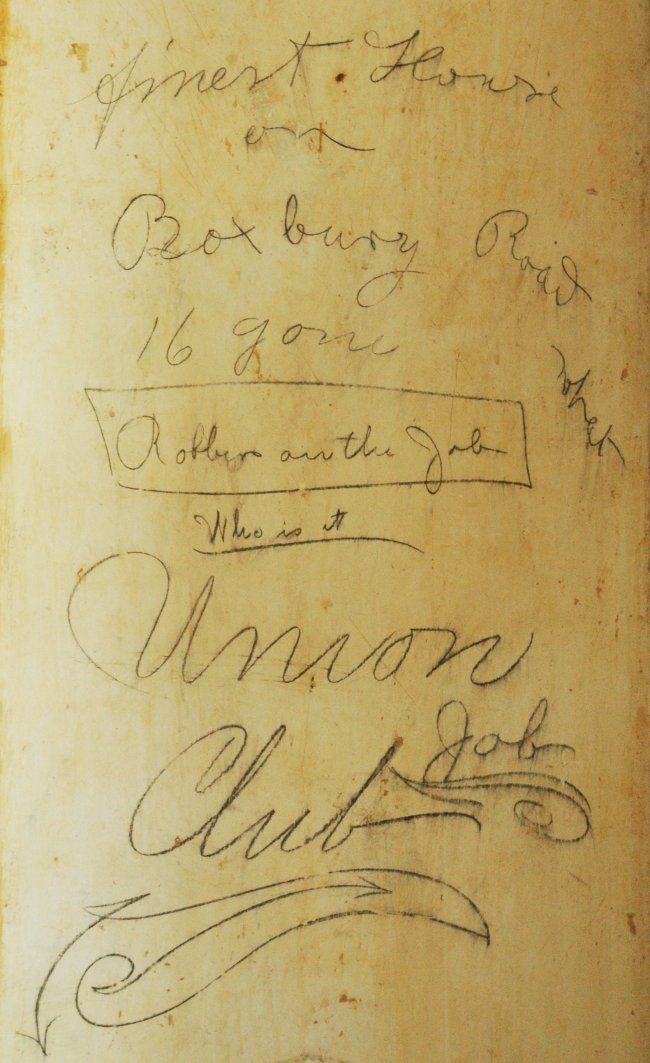 finest House
on
Boxbury Road
16 gone
Robbers on the Job
Who is it
Union
Club Job